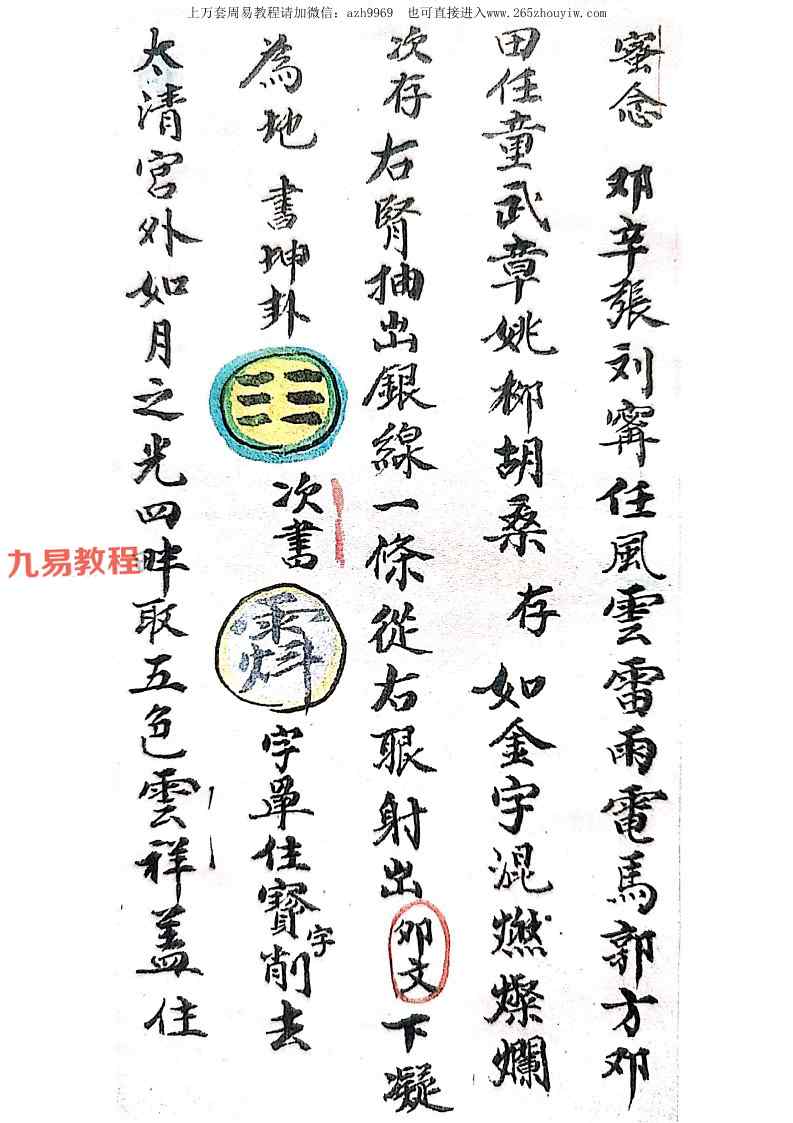 上万套周易教程请加微信：azh9969 也可直接进入www.265zhouyiw.com
蜜念 邓辛張刘寗任風雲雷雨電馬郭方邓
田任童武章姚柳胡桑 存 如金字混燃燦爛
次存右腎抽出銀線一條從右眼射出 邓文 下凝
為地 書坤卦 次書 字單住寳字削去
太清宮外如月之光四畔取五色雲祥盖住
九易教程